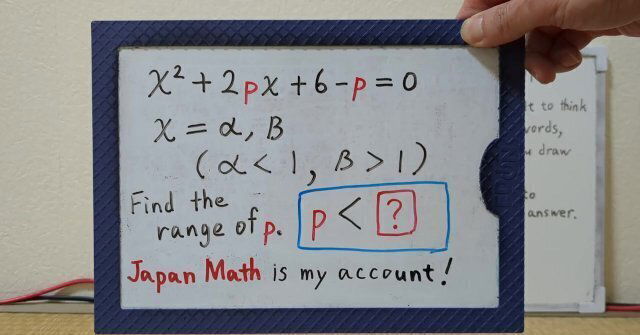 x² + 2px + 6 - p = 0
x = α, β
(α < 1, β > 1)
Find the
range of p.
p < ?
Japan Math is my account!
it to think
words,
draw
to
answer.